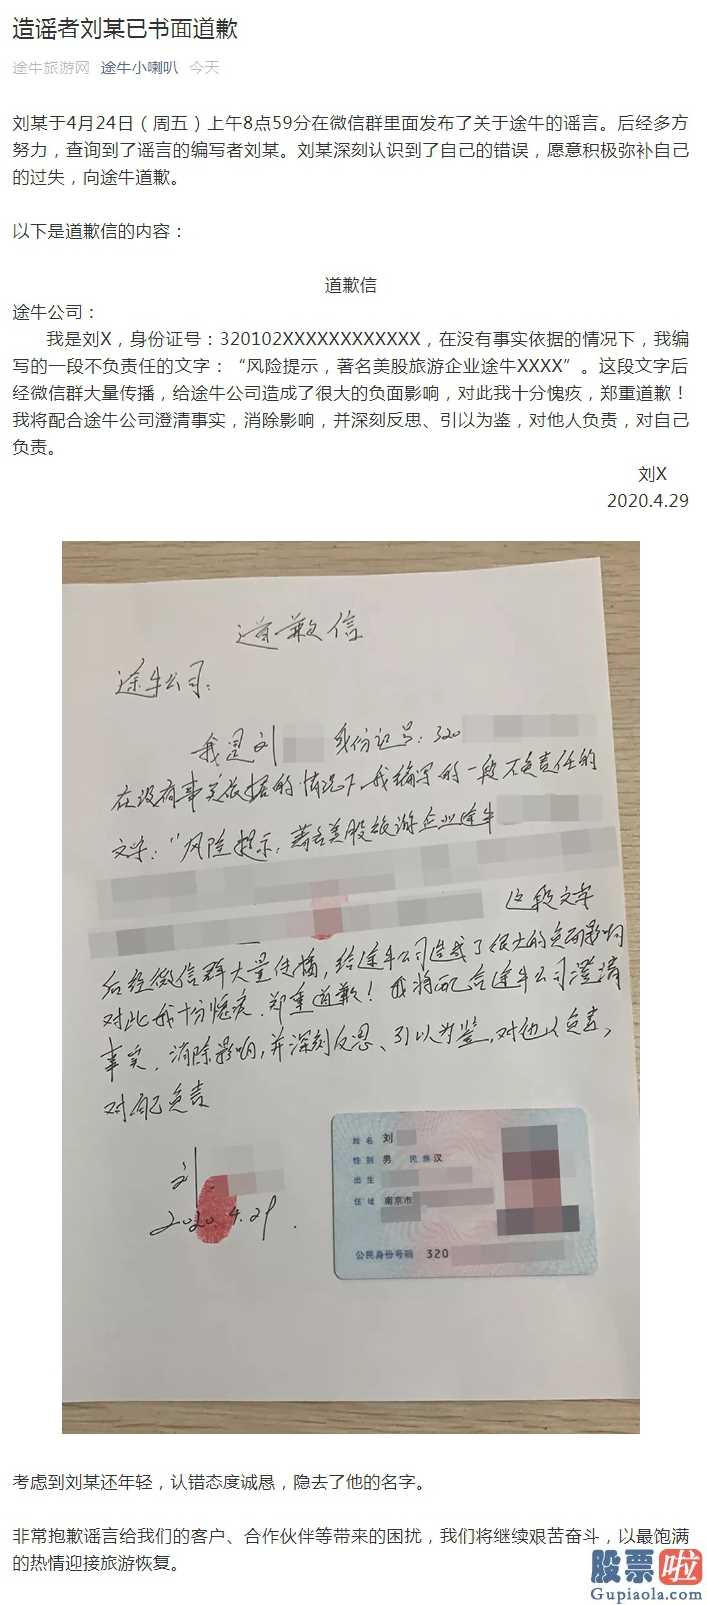 造谣者刘某已书面道歉
途牛旅游网 途牛小喇叭 今天
刘某于4月24日（周五）上午8点59分在微信群里面发布了关于途牛的谣言。后经多方
努力，查询到了谣言的编写者刘某。刘某深刻认识到了自己的错误，愿意积极弥补自己
的过失，向途牛道歉。
以下是道歉信的内容：
道歉信
途牛公司：
我是刘X，身份证号：320102XXXXXXXXXXXX，在没有事实依据的情况下，我编
写的一段不负责任的文字：“风险提示，著名美股旅游企业途牛XXXX”。这段文字后
经微信群大量传播，给途牛公司造成了很大的负面影响，对此我十分愧疚，郑重道歉！
我将配合途牛公司澄清事实，消除影响，并深刻反思、引以为鉴，对他人负责，对自己
负责。
刘X
2020.4.29
道歉信
途牛公司：
我是刘 身份证号：320
在没有事实依据的情况下，我编写的一段不负责任的
文字：“风险提示，著名美股旅游企业途牛
这段文字
后经微信群大量传播，给途牛公司造成了很大的负面影响
对此我十分愧疚，郑重道歉！我将配合途牛公司澄清
事实，消除影响，并深刻反思、引以为鉴，对他人负责，
对自己负责
刘
2020.4.29.
姓名 刘
性别 男 民族 汉
出生
住址 南京市
公民身份号码 320
考虑到刘某还年轻，认错态度诚恳，隐去了他的名字。
非常抱歉谣言给我们的客户、合作伙伴等带来的困扰，我们将继续艰苦奋斗，以最饱满
的热情迎接旅游恢复。
股票啦
Gupiaola.com